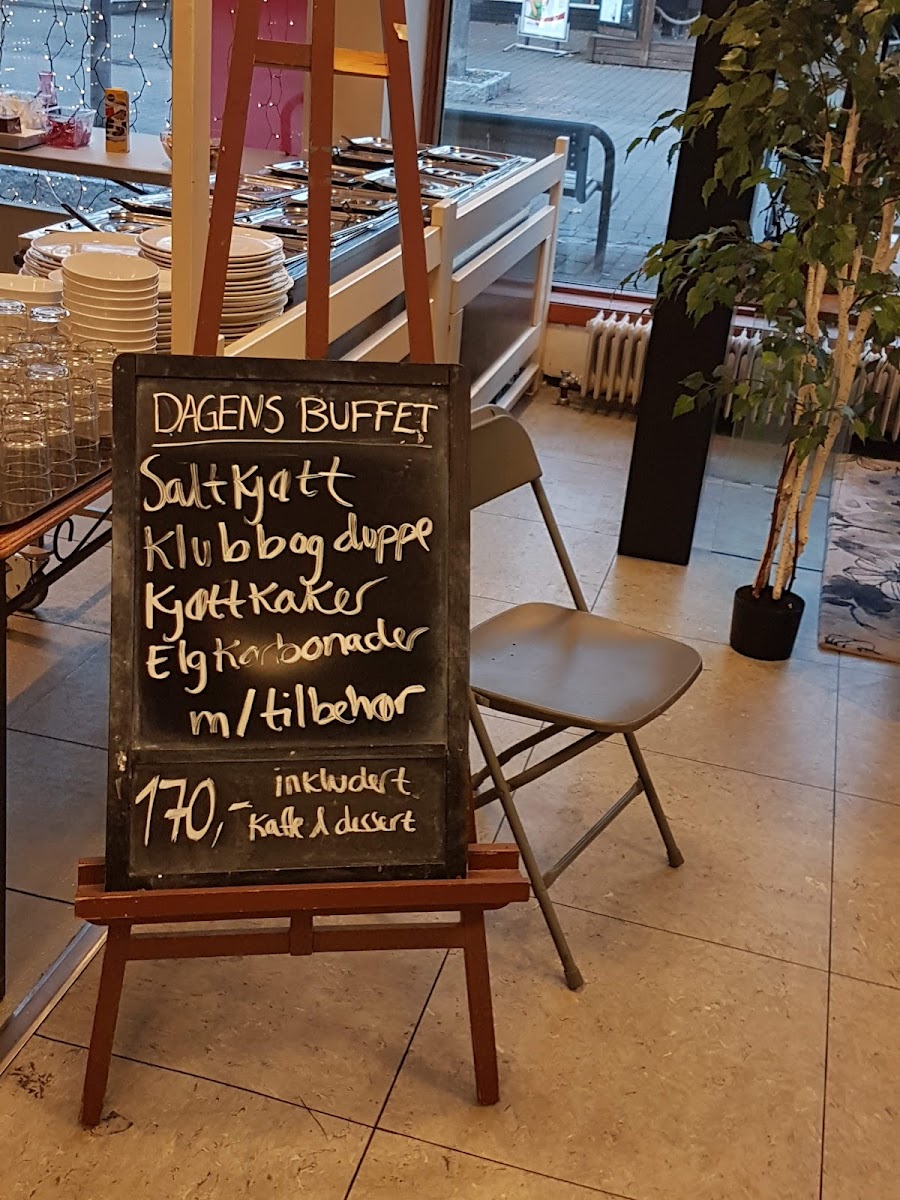 DAGENS BUFFET
Saltkjøtt
Klubb og duppe
Kjøttkaker
Elgkarbonader
m/tilbehør
170,- inkludert
kaffe & dessert